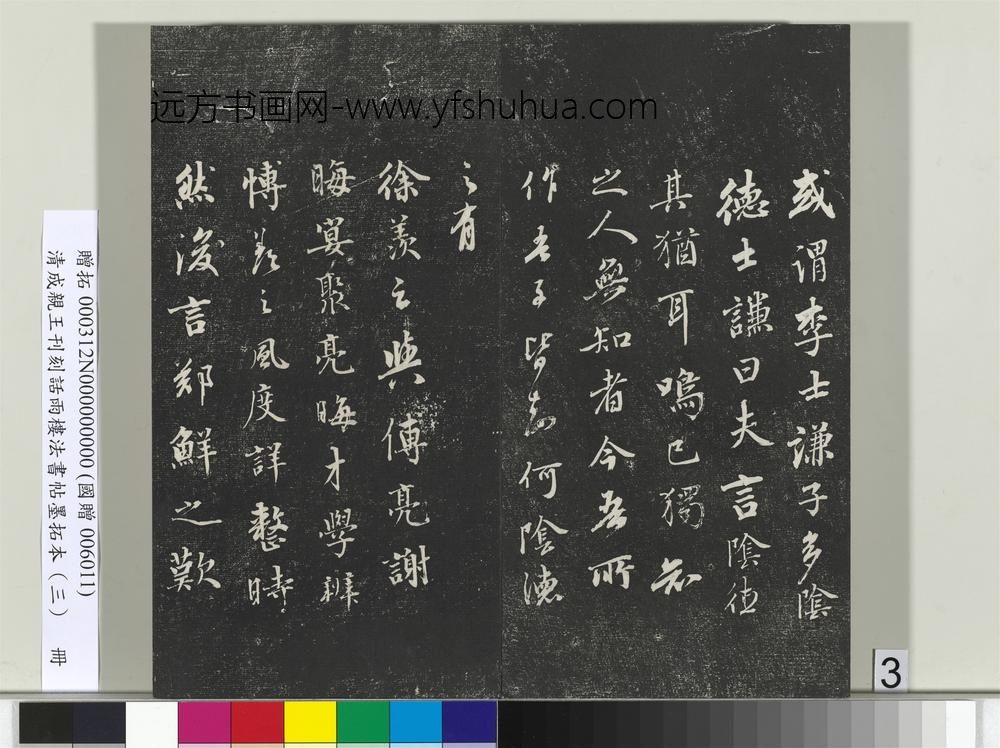 或謂李士謙子多陰
德士謙曰夫言陰德
其猶耳鳴己獨知
之人無知者今吾所
作吾子皆知何陰德
之有
徐羨之與傅亮謝
晦宴聚亮晦才學辯
愽羨之風度詳整時
然後言鄭鮮之歎
远方书画网-www.yfshuhua.com
贈拓 000312N000000000(國贈 006011)
清成親王刊刻話雨樓法書帖墨拓本(三) 冊
3